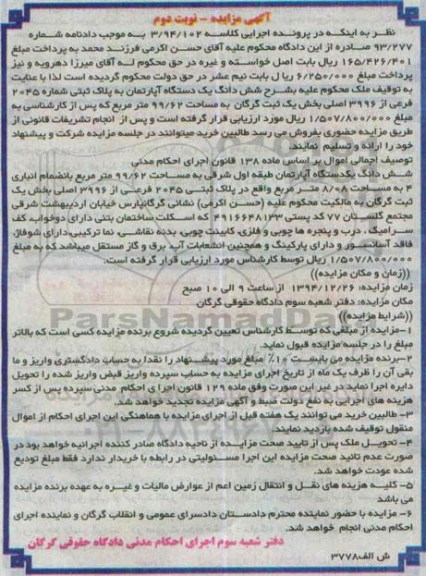 آگهی مزایده - نوبت دوم
نظر به اینکه در پرونده اجرایی کلاسه ۳/۹۴/۱۰۲ به موجب دادنامه شماره
۹۳/۲۷۷ صادره از این دادگاه محکوم علیه آقای حسن اکرمی فرزند محمد به پرداخت مبلغ
۱۶۵/۴۲۶/۴۰۱ ریال بابت اصل خواسته و غیره در حق محکوم له آقای میرزا دهرویه و نیز
پرداخت مبلغ ۶/۲۵۰/۰۰۰ ریال بابت نیم عشر در حق دولت محکوم گردیده است لذا با عنایت
به توقیف ملک محکوم علیه بشرح شش دانگ یک دستگاه آپارتمان به پلاک ثبتی شماره ۲۰۴۵
فرعی از ۳۹۹۶ اصلی بخش یک ثبت گرگان به مساحت ۹۹/۶۲ متر مربع که پس از کارشناسی به
مبلغ ۱/۵۰۷/۸۰۰/۰۰۰ ریال مورد ارزیابی قرار گرفته است و پس از انجام تشریفات قانونی از
طریق مزایده حضوری بفروش می رسد طالبین خرید میتوانند در جلسه مزایده شرکت و پیشنهاد
خود را ارائه و تسلیم نمایند.
توصیف اجمالی اموال بر اساس ماده ۱۳۸ قانون اجرای احکام مدنی
شش دانگ یکدستگاه آپارتمان طبقه اول شرقی به مساحت ۹۹/۶۲ متر مربع بانضمام انباری
۴ به مساحت ۸/۰۸ متر مربع واقع در پلاک ثبتی ۲۰۴۵ فرعی از ۳۹۹۶ اصلی بخش یک
ثبت گرگان به مالکیت محکوم علیه (حسن اکرمی) نشانی گرگانپارس خیابان اردیبهشت شرقی
مجتمع گلستان ۷۷ کد پستی ۴۹۱۶۶۴۸۱۳۳ که اسکلت ساختمان بتنی دارای دوخواب، کف
سرامیک ، درب و پنجره ها چوبی و فلزی، کابینت چوبی، بدنه نقاشی، نما ترکیبی، دارای شوفاژ،
فاقد آسانسور و دارای پارکینگ و همچنین انشعابات آب، برق و گاز مستقل میباشد که به مبلغ
۱/۵۰۷/۸۰۰/۰۰۰ ریال توسط کارشناس مورد ارزیابی قرار گرفته است.
((زمان و مکان مزایده))
زمان مزایده: ۱۳۹۴/۱۲/۲۶ از ساعت ۹ الی ۱۰ صبح
مکان مزایده: دفتر شعبه سوم دادگاه حقوقی گرگان
((شرایط مزایده))
۱-مزایده از مبلغی که توسط کارشناس تعیین گردیده شروع برنده مزایده کسی است که بالاتر
مبلغ را در جلسه مزایده قبول نماید
۲-برنده مزایده می بایست ۱۰٪ مبلغ مورد پیشنهاد را نقدا به حساب دادگستری واریز و ما
بقی آن را ظرف یک ماه از تاریخ اجرای مزایده به حساب سپرده واریز قبض واریز شده را تحویل
دایره اجرا نماید در غیر این صورت وفق ماده ۱۲۹ قانون اجرا ی احکام مدنی سپرده پس از کسر
هزینه های اجرایی به نفع دولت ضبط و آگهی مزایده تجدید خواهد شد
۳- طالبین خرید می توانند یک هفته قبل از اجرای مزایده با هماهنگی این اجرای احکام از اموال
منقول توقیف شده بازدید نمایند
۴- تحویل ملک پس از تایید صحت مزایده از ناحیه دادگاه صادر کننده اجرائیه خواهد بود در
صورت عدم تائید صحت مزایده این اجرا مسئولیتی در رابطه با خریدار ندارد فقط مبلغ تودیع
شده عودت خواهد شد.
۵- کلیه هزینه های نقل و انتقال زمین اعم از عوارض مالیات و غیره به عهده برنده مزایده
می باشد
۶-مزایده با حضور نماینده محترم دادستان دادسرای عمومی و انقلاب گرگان و نماینده اجرای
احکام مدنی انجام خواهد شد.
دفتر شعبه سوم اجرای احکام مدنی دادگاه حقوقی گرگان
ش الف۳۷۷۸
ParsNamadData